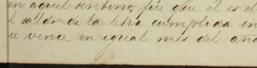 en aquel sentino, fue que él es el
l saldo de la letra cumplida en
e vence en igual mes del año